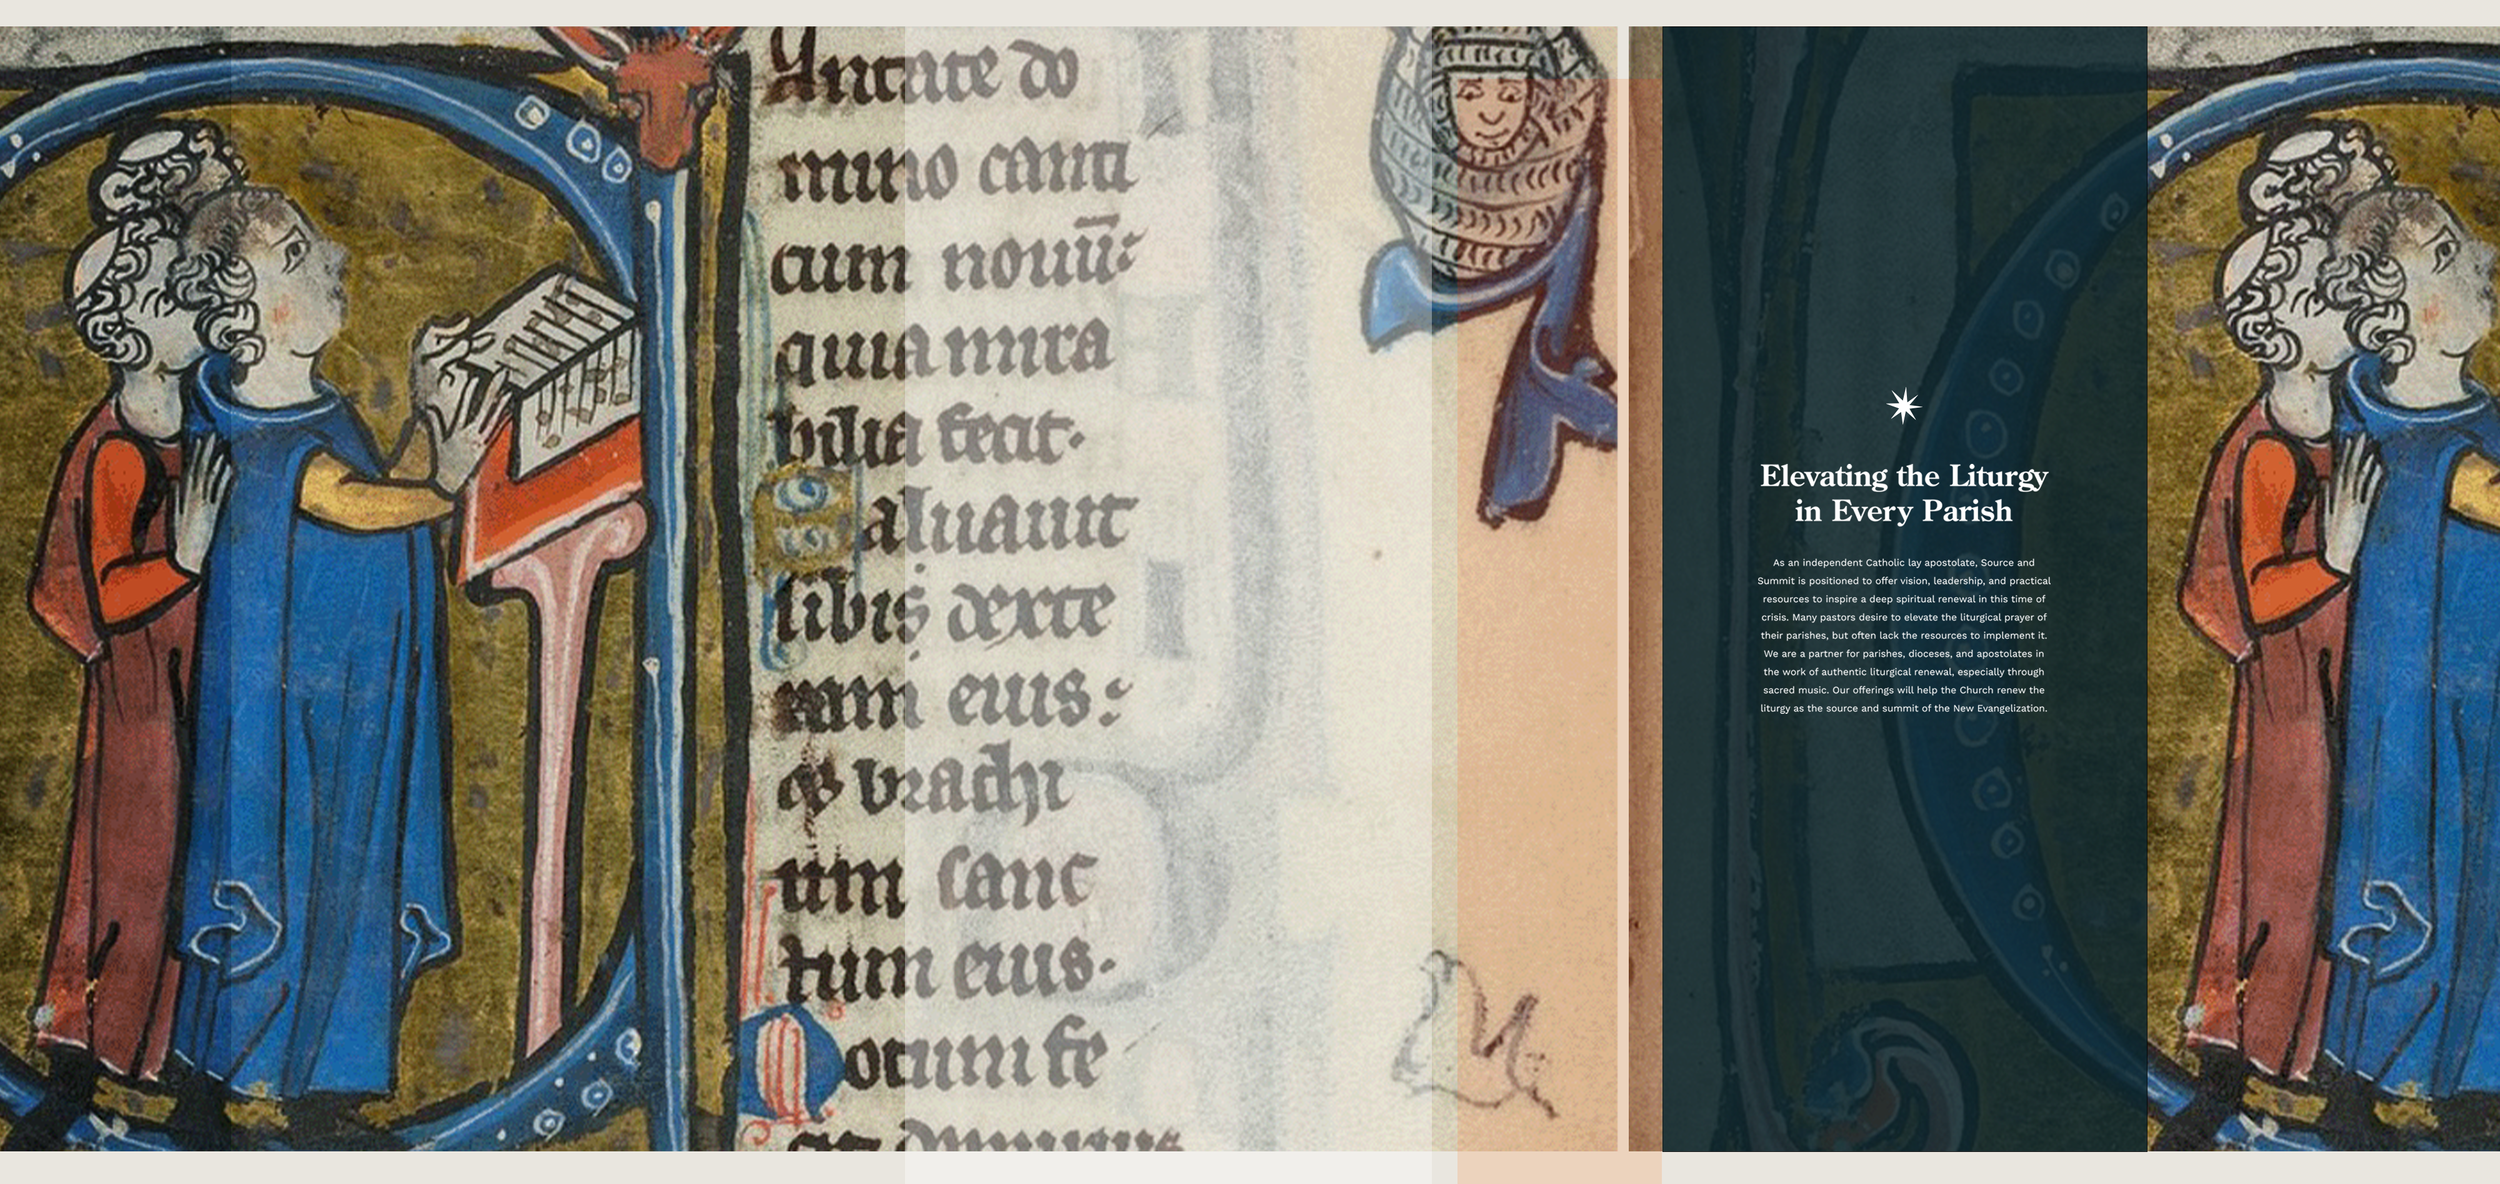 antate do
mino canti
cum nouū:
quia mira
bilia fecit.
Saluauit
sibi dexte
ram eius:
& brachi
um sanc
tum eius.
Notum fe
Elevating the Liturgy
in Every Parish
As an independent Catholic lay apostolate, Source and
Summit is positioned to offer vision, leadership, and practical
resources to inspire a deep spiritual renewal in this time of
crisis. Many pastors desire to elevate the liturgical prayer of
their parishes, but often lack the resources to implement it.
We are a partner for parishes, dioceses, and apostolates in
the work of authentic liturgical renewal, especially through
sacred music. Our offerings will help the Church renew the
liturgy as the source and summit of the New Evangelization.